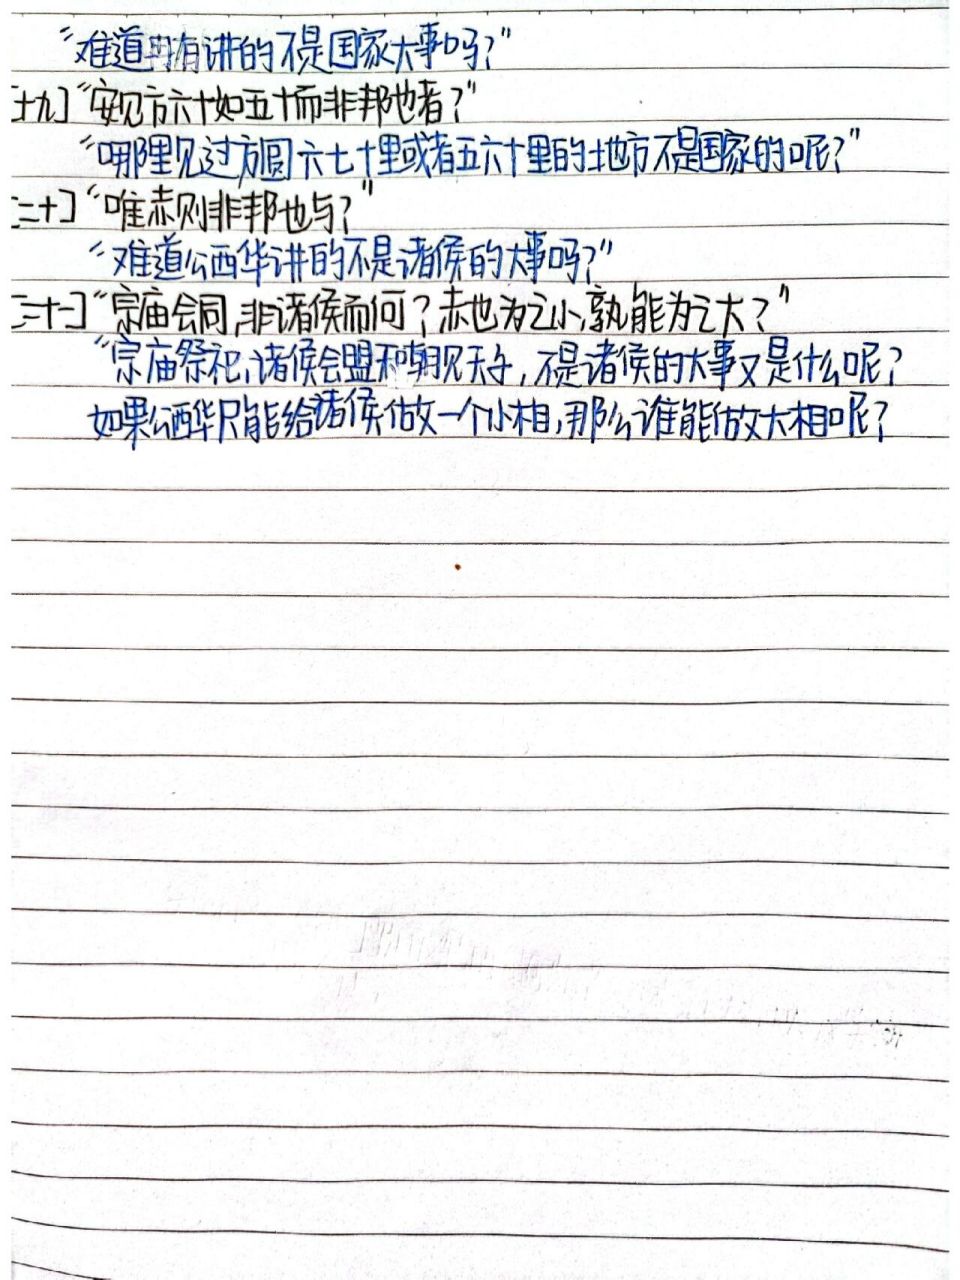 “难道冉有讲的不是国家大事吗?”
[十九]“安见方六十如五十而非邦也者?”
“哪里见过方圆六七十里或者五六十里的地方不是国家的呢?”
[二十]“唯赤则非邦也与?”
“难道公西华讲的不是诸侯的大事吗?”
[二十一]“宗庙会同,非诸侯而何?赤也为之小,孰能为之大?”
“宗庙祭祀,诸侯会盟和朝见天子,不是诸侯的大事又是什么呢?
如果公西华只能给诸侯做一个小相,那么谁能做大相呢?